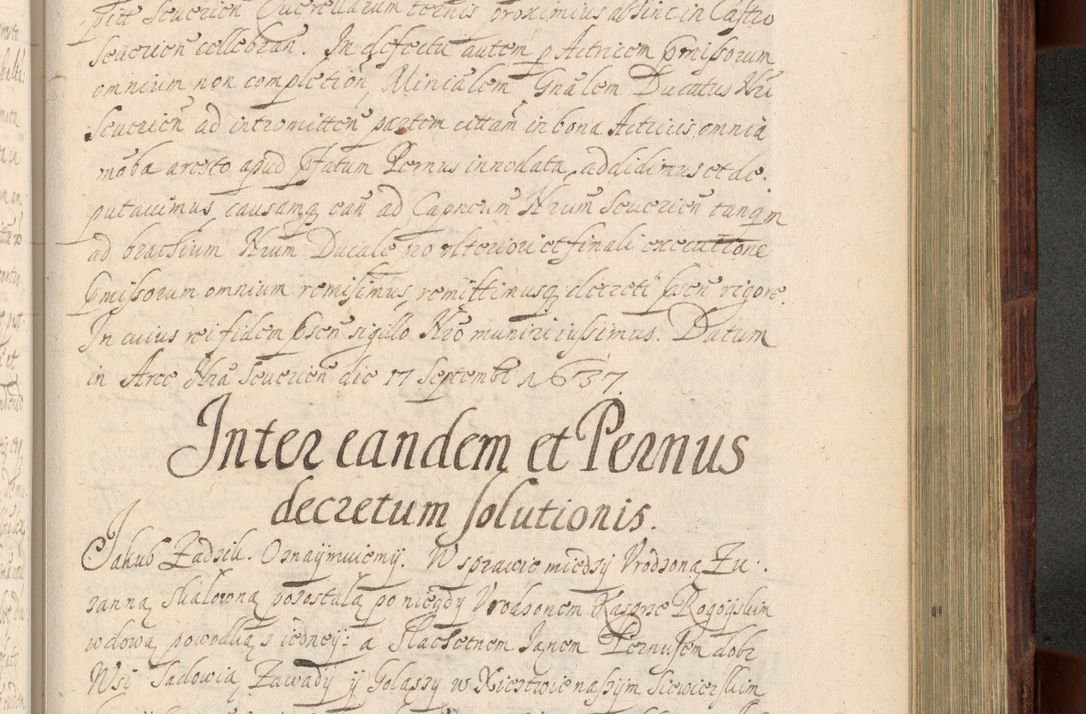 pitt Seuerien Querellarum ternis proximius abhinc in Castro
Seuerien cellebran. In defectu autem p Actricem pmissorum
omnium non completion, Minialem Gnalem Ducatus Nri
Seuerien ad intromitten partem cittam in bona Actricis, omnia
moba aresto apud pfatum Pernus innodata, addidimus et de
putauimus, causamq ean ad Capneum Nrum Seuerien tanqm
ad brachium Nrum Ducale pro vlteriori et finali executione
pmissorum omnium remisimus, remittimusq decreti psen rigore.
In cuius rei fidem psen sigillo Nro muniri iussimus. Datum
in Arce Nra Seuerien die 17 Septembr 1637.
Inter eandem et Pernus
decretum solutionis.
Jakub Zadzik. Oznaymuiemy. W sprawie miedzy Vrodzoną Zu
zanną Skalowną pozostalą po niegdy Vrodzonem Kasprze Rogoyskim
wdową powodką z iedney: a Slachetnem Janem Pernusem dobr
Wsi Sadowia, Zawady y Golaszy w Xięstwie naszym Siewierskim